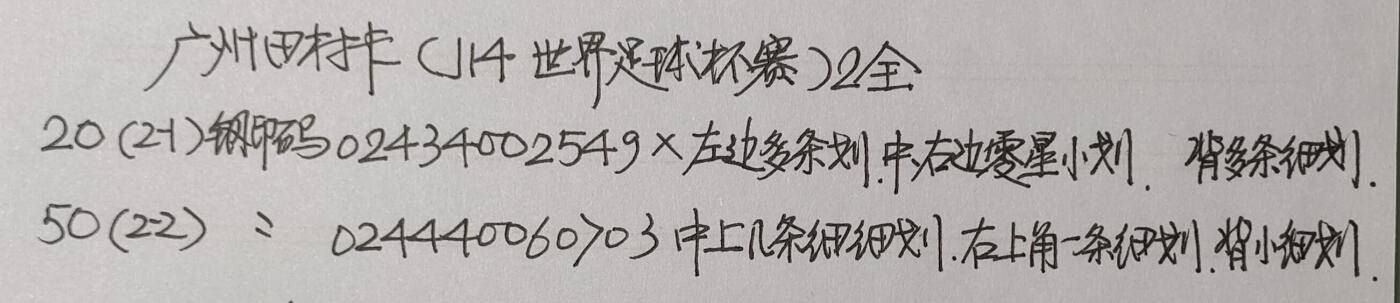 广州田村卡(J14 世界足球杯赛)2全
20(2-1)钢印码02434002549×左边多条划.中、右边零星小划. 背多条细划.
50(2-2) 〃 02444006070３中上几条细细划.右上角一条细划.背小细划.